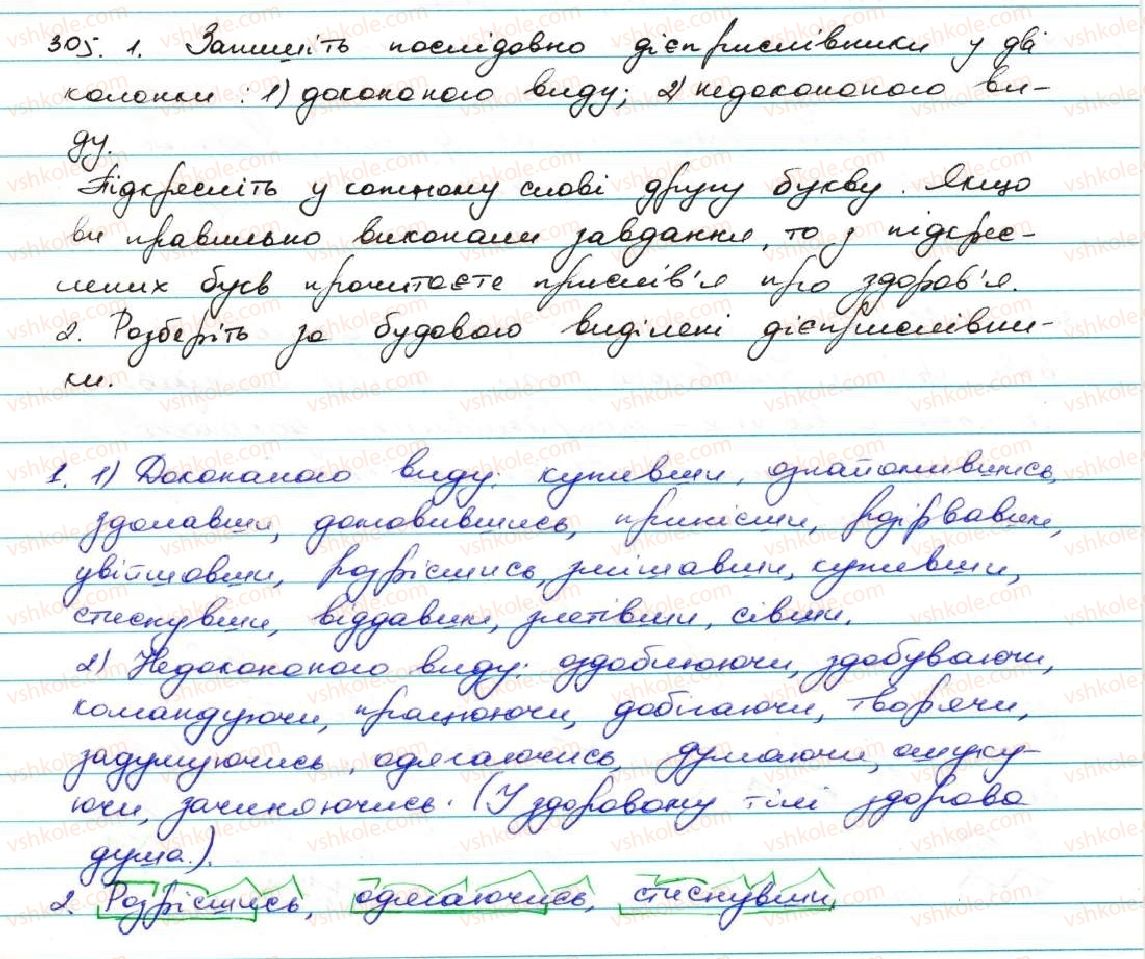 305. 1. Запишіть послідовно дієприслівники у дві
колонки : 1) доконаного виду; 2) недоконаного ви-
ду.
Підкресліть у кожному слові другу букву. Якщо
ви правильно виконали завдання, то з підкрес-
лених букв прочитаєте прислів'я про здоров'я.
2. Розберіть за будовою виділені дієприслівни-
ки.
1. 1) Доконаного виду: куживши, ознайомившись,
здолавши, домовившись, принісши, розірвавши,
увійшовши, розрісшись, змішавши, куживши,
стиснувши, віддавши, злетівши, сівши.
2) Недоконаного виду: оздоблюючи, здобуваючи,
командуючи, працюючи, добігаючи, творячи,
задумуючись, одягаючись, думаючи, ошуку-
ючи, зачиняючись. (У здоровому тілі здорова
душа.).
2. Розрісшись, одягаючись, стиснувши.